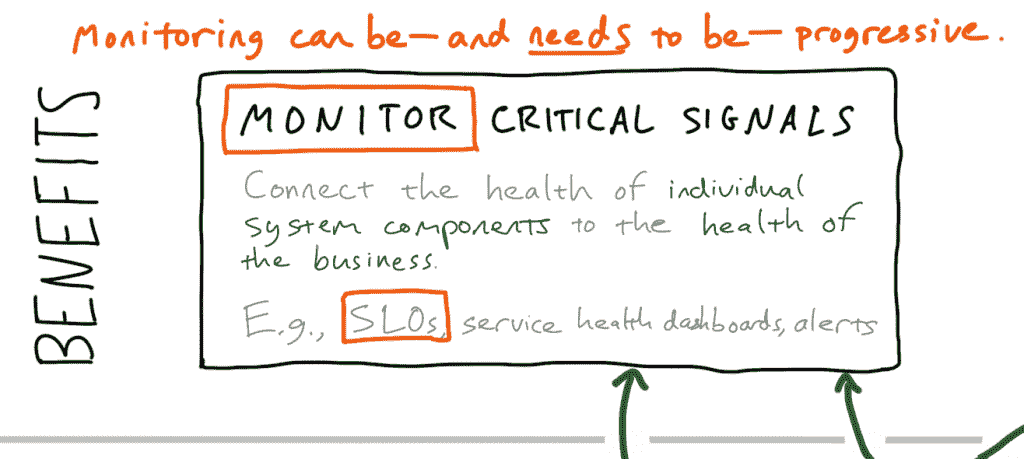 Monitoring can be—and needs to be—progressive.
BENEFITS
MONITOR CRITICAL SIGNALS
Connect the health of individual
system components to the health of
the business.
E.g., SLOs, service health dashboards, alerts